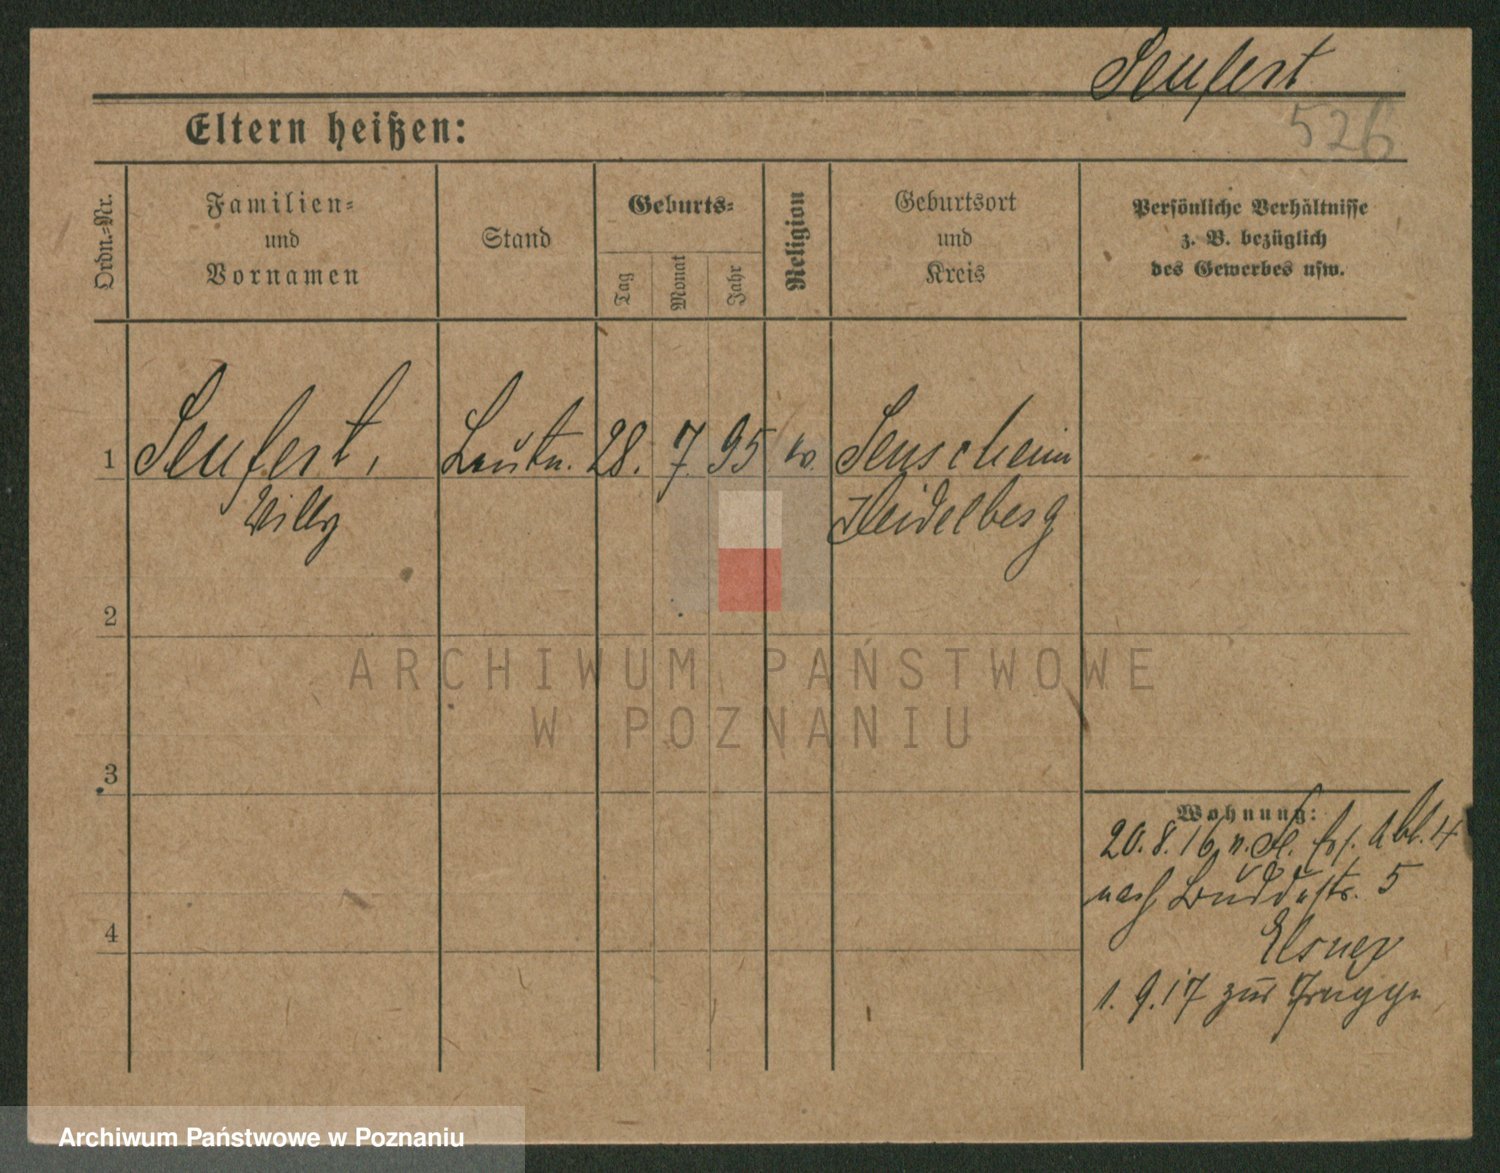 Seufert
526
Eltern heißen:
Ordn.-Nr.
Familien-
und
Vornamen
Stand
Geburts-
Tag
Monat
Jahr
Religion
Geburtsort
und
Kreis
Persönliche Verhältnisse
z. B. bezüglich
des Gewerbes usw.
1
Seufert,
Leutn.
28.
7.
95
ev.
Willy
Heidelberg
2
ARCHIWUM PAŃSTWOWE
W POZNANIU
3
Wohnung:
20.8.16 v. Abt. 4
nach Buddestr. 5
Elsner
4
1. 9. 17 zur Truppe
Archiwum Państwowe w Poznaniu